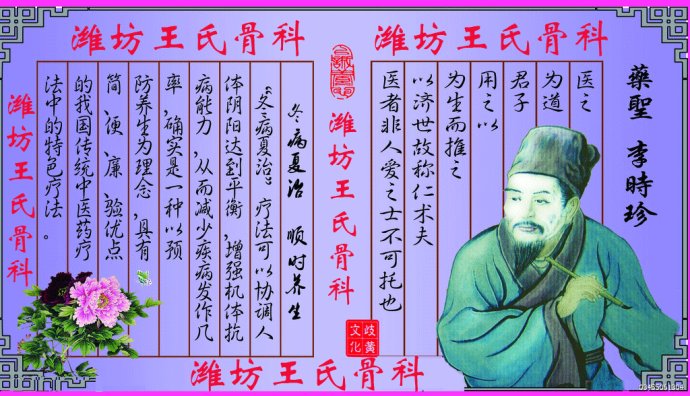 潍坊王氏骨科
潍坊王氏骨科
藥聖 李時珍
医之
为道
君子
用之以
为生而推之
以济世故称仁术夫
医者非人爱之士不可托也
潍坊王氏骨科
岐黄
文化
冬病夏治 顺时养生
“冬病夏治”疗法可以协调人
体阴阳达到平衡,增强机体抗
病能力,从而减少疾病发作几
率,确实是一种以预
防养生为理念,具有
简、便、廉、验优点
的我国传统中医药疗
法中的特色疗法。
潍坊王氏骨科
潍坊王氏骨科